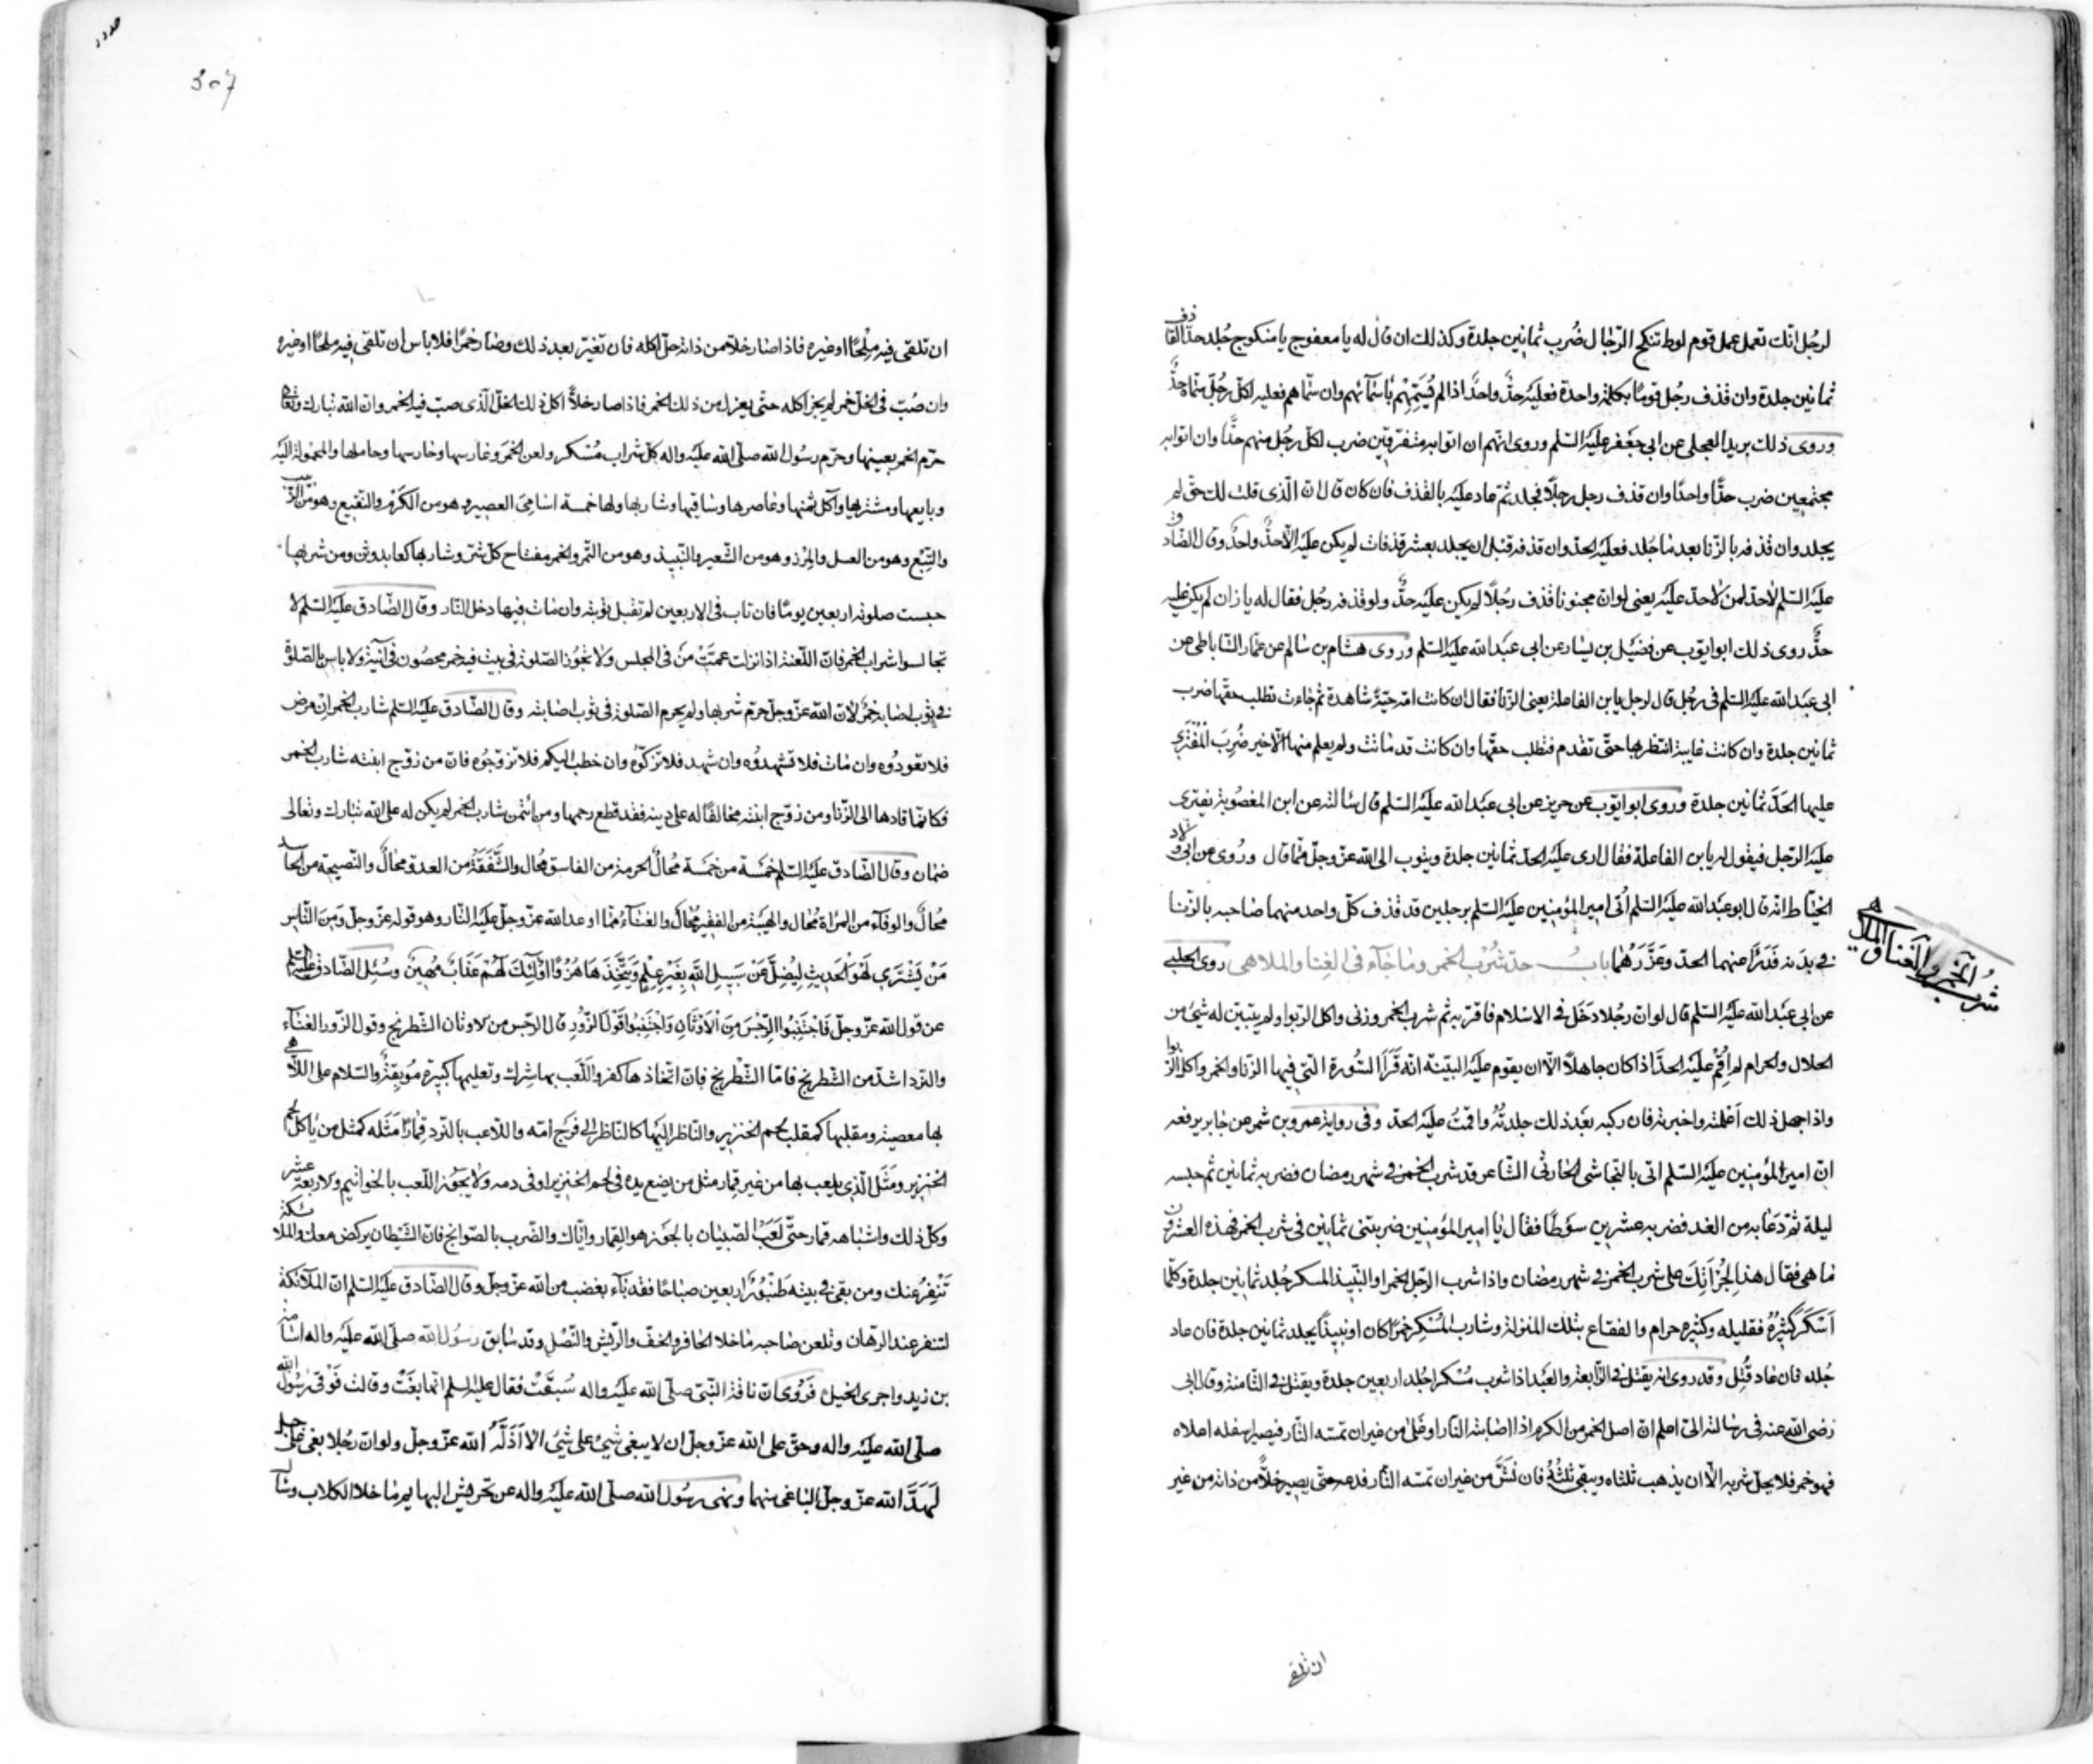 لرجل انّك تعمل عمل قوم لوط تنكح الرّجال ضُرب ثمانين جلدة وكذلك ان قال له يا معفوج يا منكوح جُلد حدّ القاذف
ثمانين جلدة وان قذف رجُل قومًا بكلمة واحدة فعليه حدٌّ واحدٌ اذا لم يُسَمِّهِمْ باسمآئهم وان سمّاهم فعليه لكلّ رجُل سمّاه حدٌّ
وروى ذلك بريد العجلى عن ابى جعفر عليه السّلم وروى انّهم ان اتوا به متفرّقين ضرب لكلّ رجُل منهم حدًّا وان اتوا به
مجتمعين ضرب حدًّا واحدًا وان قذف رجل رجلًا فجلد ثمّ عاد عليه بالقذف فان كان قال انّ الّذى قلت لك حقّ لم
يجلد وان قذفه بالزّنا بعد ما جُلد فعليه الحدّ وان قذفه قبل ان يجلد بعشر قذفات لم يكن عليه الّا حدٌّ واحدٌ وقال الصّادق
عليه السّلم لا حدّ لمن لا حدّ عليه يعنى لو انّ مجنونا قذف رجُلًا لم يكن عليه حدٌّ ولو قذفه رجُل فقال له يا زان لم يكن عليه
حدٌّ روى ذلك ابو ايّوب عن فضيل بن يسار عن ابى عبد الله عليه السّلم وروى هشام بن سالم عن عمّار السّاباطى عن
ابى عبد الله عليه السّلم فى رجُل قال لرجل يا بن الفاعلة يعنى الزّنا فقال ان كانت امّه حيّة شاهدة ثم جاءت تطلب حقّها ضرب
ثمانين جلدة وان كانت غايبة انتظر بها حتّى تقدم فتطلب حقّها وان كانت قد ماتت ولم يعلم منها الّا خير ضُرِبَ المُفْتَرِى
عليها الحَدَّ ثمانين جلدة وروى ابو ايّوب عن حريز عن ابى عبد الله عليه السّلم قال سالته عن ابن المغصُوبة يفترى
عليه الرّجل فيقول له يا بن الفاعلة فقال ارى عليه الحدّ ثمانين جلدة ويتوب الى الله عزّ وجلّ ممّا قال ورُوى عن ابى ولّاد
الحنّاط انّه قال ابو عبد الله عليه السّلم اُتى امير المؤمنين عليه السّلم برجلين قد قذف كلّ واحد منهما صاحبه بالزّنا
فى بدنه فَدَرَاَ عنهما الحدّ وعَزَّرَهُما باب حدّ شُرْب الخمر وما جآء فى الغِنا والملاهى روى الحلبى
شرب الخمر والغنا والملاهى
عن ابى عبد الله عليه السّلم قال لو انّ رجُلا دَخَلَ فى الاسْلام فاقرّ به ثم شرب الخمر وزنى واكل الرّبوا ولم يتبيّن له شئ من
الحلال والحرام لم اُقِمْ عليه الحدّ اذا كان جاهلًا الّا ان يقوم عليه البيّنة انّه قَرَأ السُّورة الّتى فيها الزّنا والخمر واكل الرّبوا
واذا جهل ذلك اَعْلمته واخبرته فان ركبه بَعْد ذلك جلدتُهُ واقمتُ عليه الحدّ وفى رواية عمرو بن شمر عن جابر يرفعه
انّ امير المؤمنين عليه السّلم اتى بالنّجاشى الحارثى الشّاعر قد شرب الخمر فى شهر رمضان فضربه ثمانين ثم حبسه
ليلة ثمّ دَعَا به من الغد فضربه عشرين سَوْطًا فقال يا امير المؤمنين ضربتنى ثمانين فى شرب الخمر فهذه العشرون
ما هى فقال هذا لِجُرْأَتِكَ على شرب الخمر فى شهر رمضان واذا شرب الرّجل الخمر او النّبيذ المسكر جُلد ثمانين جلدة وكلّما
اَسْكَرَ كَثِيْرُهُ فقليله وكثيره حرام والفقاع بتلك المنزلة وشارب المُسْكِرِ خمرًا كان او نبيذًا يجلد ثمانين جلدة فان عاد
جُلد فان عاد قُتِل وقد روى انه يقتل فى الرّابعة والعَبْد اذا شرب مُسْكرا جُلد اربعين جلدة ويقتل فى الثّامنة وقال ابى
رضى الله عنه فى رسالته الىّ اعلم انّ اصل الخمر من الكرم اذا اصابته النّار او غلى من غير ان تمسّه النّار فيصير اسفله اعلاه
فهو خمر فلا يحلّ شربه الّا ان يذهب ثلثاه ويبقى ثُلُثُهُ فان نَشَّ من غير ان تمسّه النّار فدعه حتّى يصير خلًّا من ذاته من غير
ان تلقى
307
ان تلقى فيه مِلْحًا او غيره فاذا صار خلًّا من ذاته حلّ اكله فان تغيّر بعد ذلك وصار خمرًا فلا باس ان تلقى فيه ملحًا او غيره
وان صُبّ فى الخلّ خمر لم يجز اكله حتّى يعزل من ذلك الخمر فاذا صار خلًّا اكل ذلك الخلّ الّذى صبّ فيه الخمر وانّ الله تبارك وتعالى
حرّم الخمر بعينها وحرّم رسُول الله صلّى الله عليه واله كلّ شراب مُسْكر ولعن الخمَر وغارسها وحارسها وحاملها والمحمولة اليه
وبايعها ومشتريها وآكل ثمنها وعاصرها وساقيها وشاربها ولها خمسة اسامى العصير وهو من الكَرْم والنّقيع وهو من الزّبيب
والبِتْع وهو من العسل والمِزر وهو من الشّعير والنّبيذ وهو من التّمر والخمر مفتاح كلّ شرّ وشاربها كعابد وثن ومن شربها
حبست صلوته اربعين يومًا فان تاب فى الاربعين لم تقبل توبته وان مات فيها دخل النّار وقال الصّادق عليه السّلم لا
تجالسوا شراب الخمر فانّ اللّعنة اذا نزلت عمّتْ مَنْ فى المجلس ولا تجُوز الصّلوة فى بيت فيه خمر محصُور فى آنية ولا باس بالصّلوة
فى ثوب اصابه خمرٌ لانّ الله عزّ وجلّ حرّم شربها ولم يحرم الصّلوة فى ثوب اصابته وقال الصّادق عليه السّلم شارب الخمر انْ مرض
فلا تعودُوه وان مات فلا تشهدُوه وان شهد فلا تزكّوُه وان خطب اليكم فلا تزوّجُوه فانّ من زوّج ابنته شارب الخمر
فكانّما قادها الى الزّنا ومن زوّج ابنته مخالفًا له على دينه فقد قطع رحمها ومن ائتمن شارب الخمر لم يكن له على الله تبارك وتعالى
ضمان وقال الصّادق عليه السّلم خمْسَة من خمْسَة مُحالٌ الحرمة من الفاسق مُحال والشَّفَقَةُ من العدوّ محالٌ والنّصيحة من الحاسد
مُحالٌ والوفآء من المرأة مُحال والهيْبَة من الفقير مُحالٌ والغنآءُ ممّا اوعد الله عزّ وجلّ عليه النّار وهو قوله عزّ وجلّ وَمِنَ النَّاسِ
مَنْ يَشْتَرِي لَهْوَ الْحَدِيثِ لِيُضِلَّ عَنْ سَبِيلِ اللَّهِ بِغَيْرِ عِلْمٍ وَيَتَّخِذَهَا هُزُوًا اُولَئِكَ لَهُمْ عَذَابٌ مُهِينٌ وسُئِل الصّادق عليه السّلم
عن قول الله عزّ وجلّ فَاجْتَنِبُوا الرِّجْسَ مِنَ الْاَوْثَانِ وَاجْتَنِبُوا قَوْلَ الزُّورِ قال الرّجس من الاوثان الشّطرنج وقول الزّور الغنآء
والنّرد اشدّ من الشّطرنج فامّا الشّطرنج فانّ اتّخاذها كفر واللّعب بها شِرك وتعليمها كبيرة مُوبِقَةٌ والسّلام على اللّاهى
بها معصية ومقلبها كمقلب لحم الخنزير والنّاظر اليها كالنّاظر الى فرج امّه واللّاعب بالنّرد قِمارًا مَثَله كمثل من ياكل لحم
الخنزير ومَثَل الّذى يلعب بها من غير قمار مثل من يضع يده فى لحم الخنزير او فى دمه ولا يجوز اللّعب بالخواتيم والاربعة عشر
وكلّ ذلك واشباهه قمار حتّى لَعِبُ الصّبيان بالجَوز هو القِمار وايّاك والضّرب بالصّوانج فانّ الشّيطان يركض معك والملائكة
تَنْفِرُ عنك ومن بقى فى بيته طُنْبُوُرٌ اربعين صباحًا فقد بآء بغضب من الله عزّ وجلّ وقال الصّادق عليه السّلم انّ الملآئكة
لتنفر عند الرّهان وتلعن صاحبه ما خلا الحافر والخفّ والرّيش والنّصْل وقد سابق رسُول الله صلّى الله عليه واله اسامة
بن زيد واجرى الخيل فَرُوِى انّ ناقة النّبىّ صلّى الله عليه واله سُبِقَتْ فقال عليه السّلم انّها بغَتْ وقالت فَوْقى رَسُول الله
صلّى الله عليه واله وحقّ على الله عزّ وجلّ ان لا يبغى شئٌ على شئ الّا اَذَلَّهُ الله عزّ وجلّ ولو انّ جبلا بغى على جبل
لَهَدَّ الله عزّ وجلّ الباغى منهما ونهى رسُول الله صلّى الله عليه واله عن تحريش البهايم ما خلا الكلاب وسال